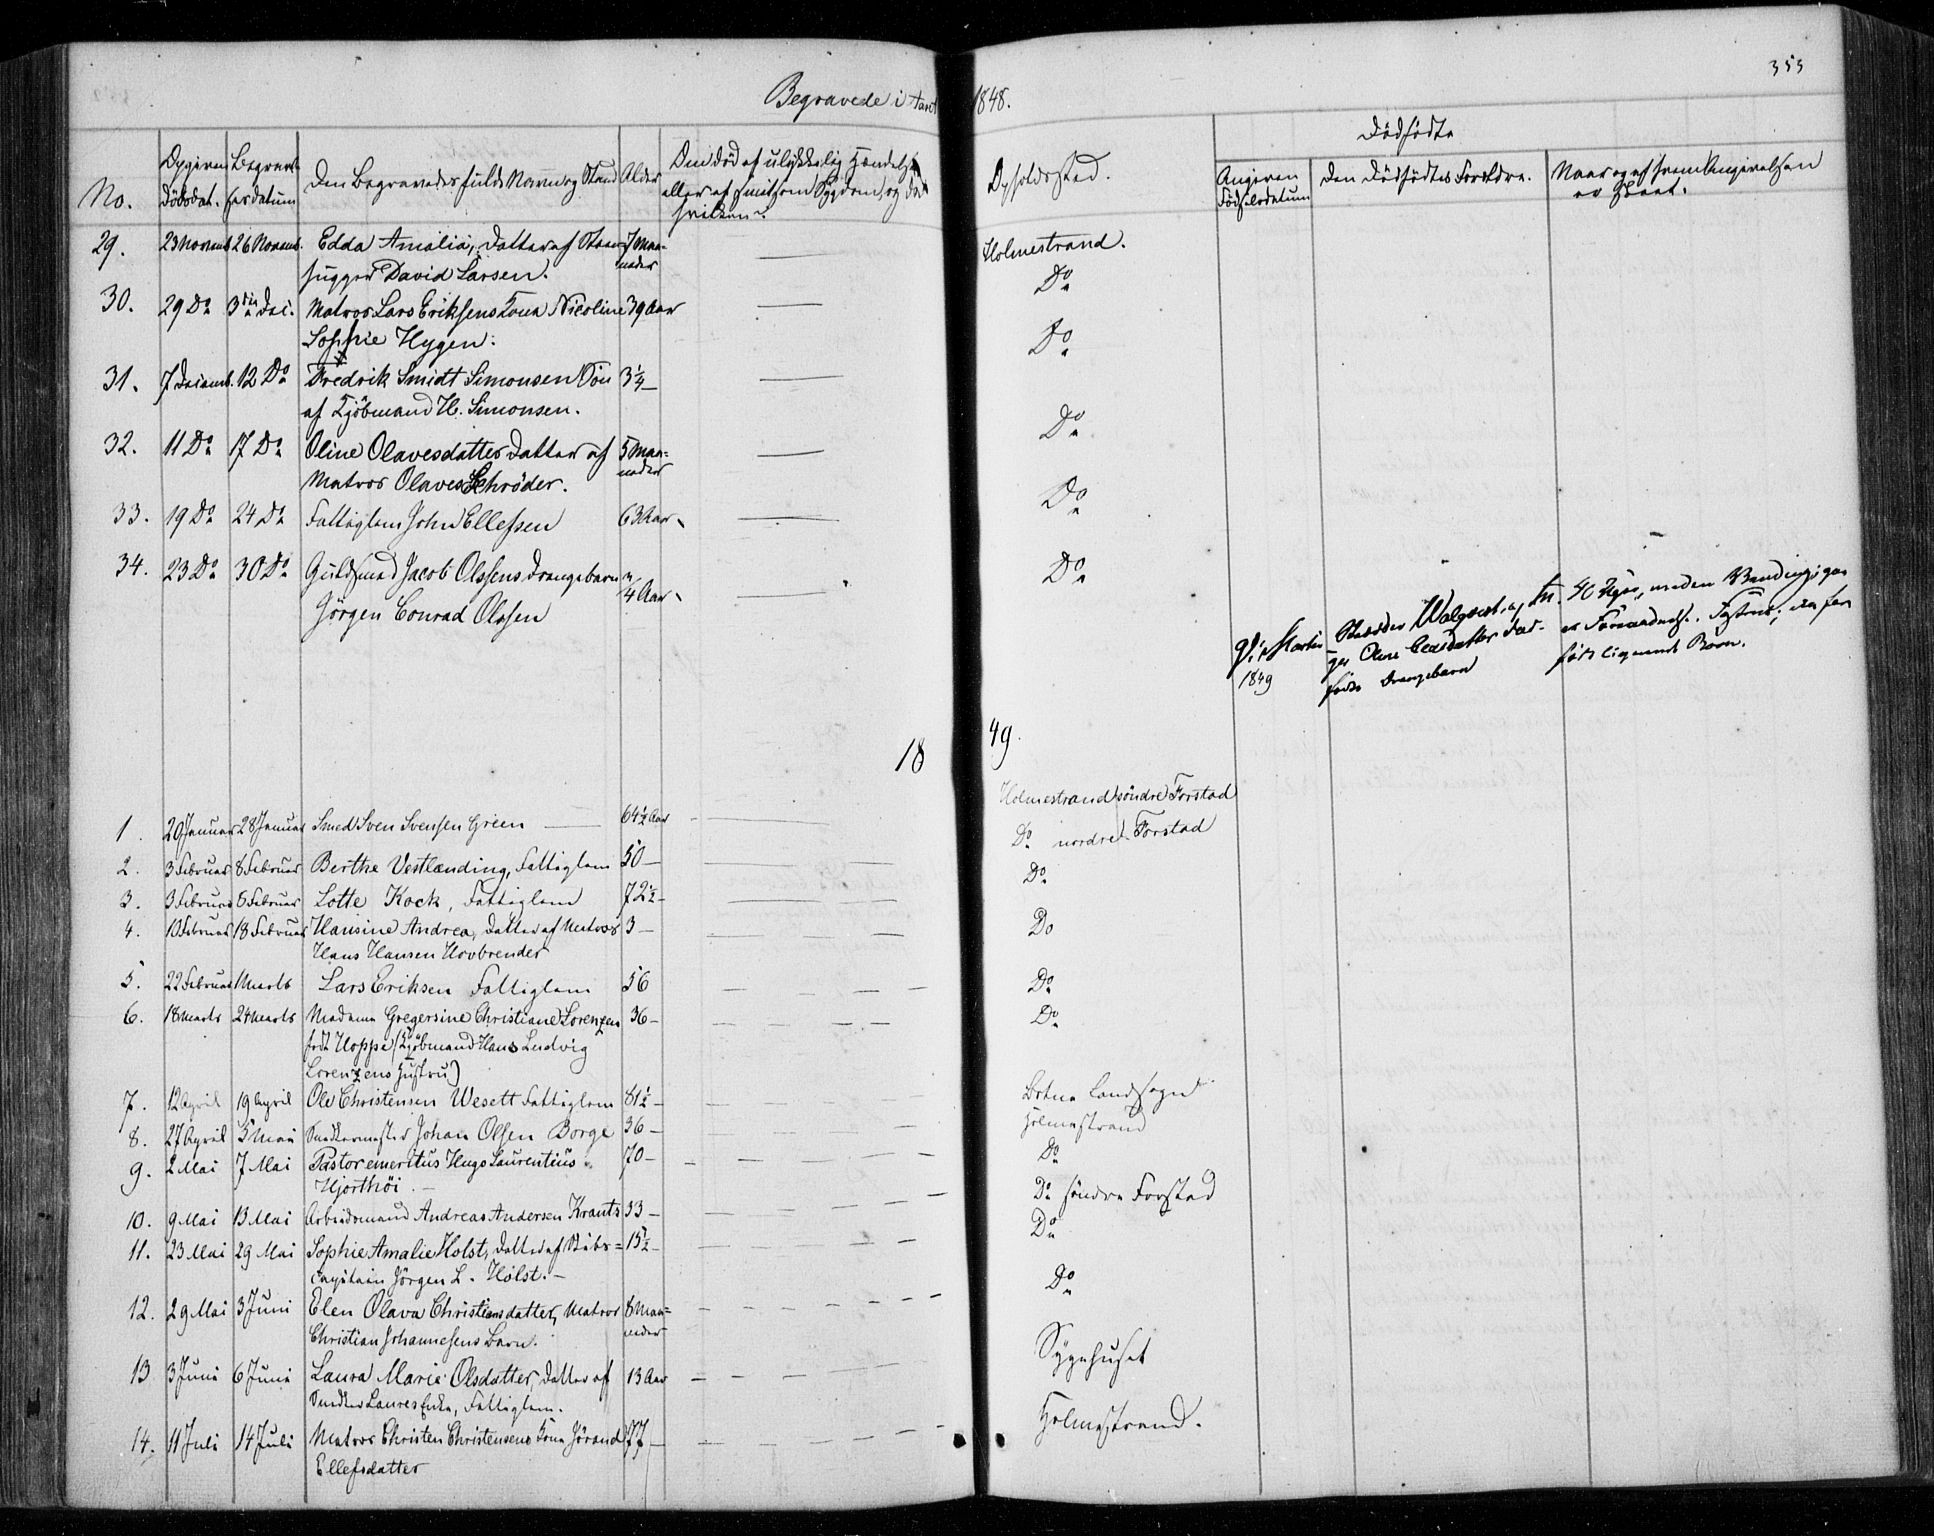 355
Begravede i Aaret 1848.
Dødfødte
No.
Opgiven Dödsdat.
Begravelsesdatum
Den Begravedes fulde Navn og Stand
Alder
Om død af ulykkelig Hændelse
eller af smitsom Sygdom, og da
hvilken?
Opholdssted.
Angiven
Fødselsdatum
Den Dødfødtes Forældre.
Naar og af hvem Angivelsen
er skeet.
29. 23 Novemb. 26 Novemb. Edda Amalia, Datter af 7 Maa- Holmestrand.
hugger David Larsen. neder
30. 29 Do 3die Dec. Matros Lars Eriksens Kona Nicoline 39 Aar Do
Sophie Hygen.
31. 7 Decemb. 12 Do Fredrik Smidt Simonsen Søn 3 1/4 — Do
af Kjöbmand H. Simonsen.
32. 11 Do 17 Do Oline Olavesdatter Datter af 5 Maa- Do
Matros Olaves Schröder. neder
33. 19 Do 24 Do Fattiglem John Ellefsen 63 Aar Do
34. 23 Do 30 Do Guldsmed Jacob Olssens Drengebarn 3/4 Aar Do
Jörgen Conrad Olssen
Marts
1849
Walqvist og
Oline
født Drengebarn
1849.
1. 20 Januar 28 Januar Smed Sven Svensen Green 64 1/2 Aar Holmestrand söndre Forstad
2. 3 Februar 8 Februar Berthe Vestlænding, Fattiglem 50 — Do nordre Forstad
3. 3 Februar 6 Februar Lotte Kock, Fattiglem 72 1/2 — Do
4. 10 Februar 18 Februar Hansine Andrea, Datter af Matros 3 — Do
Hans Hansen Hovbrender
5. 22 Februar 1 Marts Lars Eriksen Fattiglem 56 Do
6. 18 Marts 24 Marts Madame Gregersine Christiane Lorenzen 36 — Do
født Hoppe (Kjöbmand Hans Ludvig
Lorenzens Hustru)
7. 12 April 19 April Ole Christensen Wesett Fattiglem 81 1/2 — Botne Landsogn
8. 27 April 5 Mai Snedkermester Johan Olsen Borge 36 — Holmestrand
9. 2 Mai 7 Mai Pastor emeritus Hugo Laurentius 70 — Do
Hjorthöi.
10. 9 Mai 13 Mai Arbeidsmand Andreas Andersen Krants 33 — Do söndre Forstad
11. 23 Mai 29 Mai Sophie Amalie Holst, Datter af Skibs= 15 1/2 — Do
capitain Jörgen L. Holst.
12. 29 Mai 3 Juni Elen Olava Christiansdatter, Matros 8 Maa= Do
Christian Johannesens Barn. neder
13. 3 Juni 6 Juni Laura Marie Olsdatter, Datter af 13 Aar Sygehuset
Fattiglem.
14. 11 Juli 14 Juli Matros Christen Christensens Kone Jörand 77 — Holmestrand.
Ellefsdatter